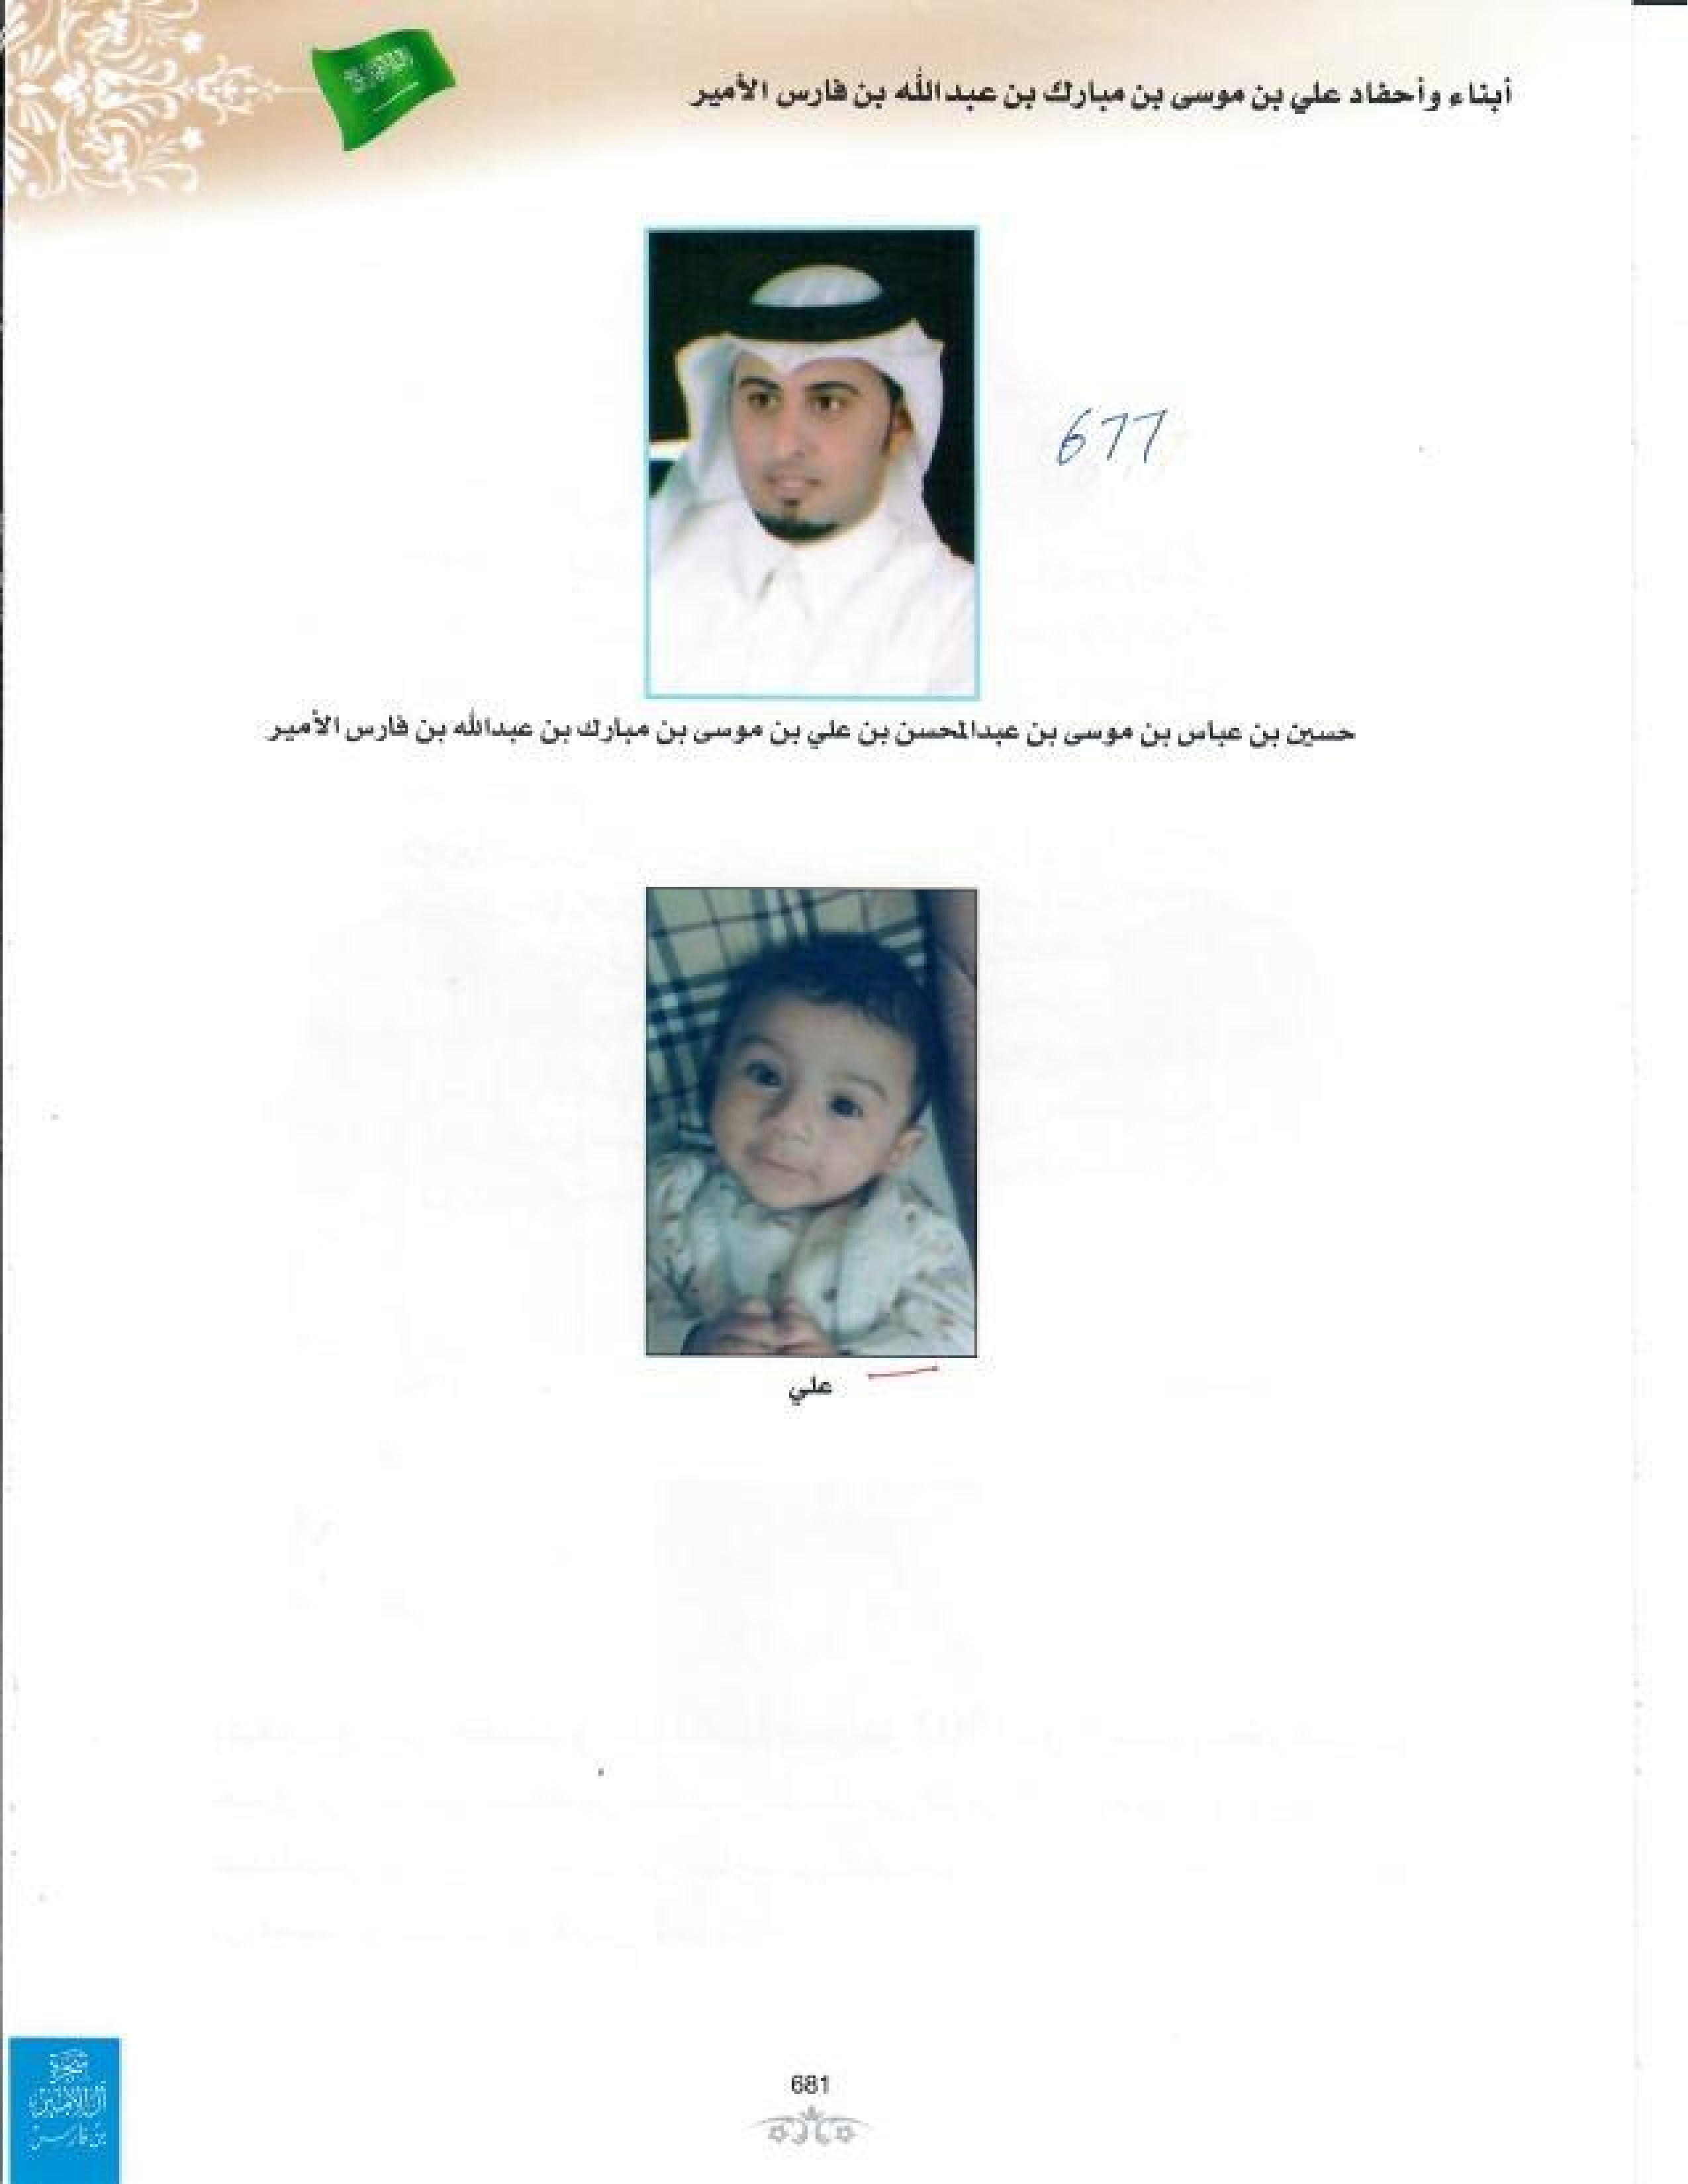 أبناء وأحفاد علي بن موسى بن مبارك بن عبدالله بن فارس الأمير
677
حسين بن عباس بن موسى بن عبدالمحسن بن علي بن موسى بن مبارك بن عبدالله بن فارس الأمير
علي
شجرة
آل الأمير
بن فارس
681